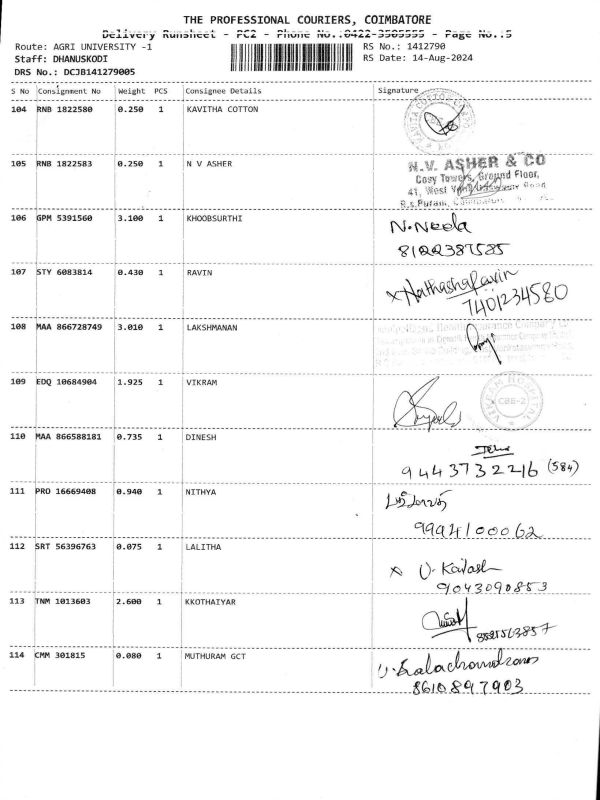 THE PROFESSIONAL COURIERS, COIMBATORE
Delivery Runsheet - PC2 - Phone No.:0422-3505555 - Page No.:5
Route: AGRI UNIVERSITY -1
RS No.: 1412790
Staff: DHANUSKODI
RS Date: 14-Aug-2024
DRS No.: DCJB141279005
S No Consignment No Weight PCS Consignee Details Signature
104 RNB 1822580 0.250 1 KAVITHA COTTON
105 RNB 1822583 0.250 1 N V ASHER
N.V. ASHER & CO
Cosy Towers, Ground Floor,
41, West Road
R.s.Puram,
106 GPM 5391560 3.100 1 KHOOBSURTHI
N. Neela
8122387585
107 STY 6083814 0.430 1 RAVIN
x Nathasha Ravin
7401234580
108 MAA 866728749 3.010 1 LAKSHMANAN
109 EDQ 10684904 1.925 1 VIKRAM
HOSPITAL
CBE-2
110 MAA 866588181 0.735 1 DINESH
9443732216 (584)
111 PRO 16669408 0.940 1 NITHYA
9994100062
112 SRT 56396763 0.075 1 LALITHA
x U. Kailash
9043090853
113 TNM 1013603 2.600 1 KKOTHAIYAR
114 CMM 301815 0.080 1 MUTHURAM GCT
8610897903